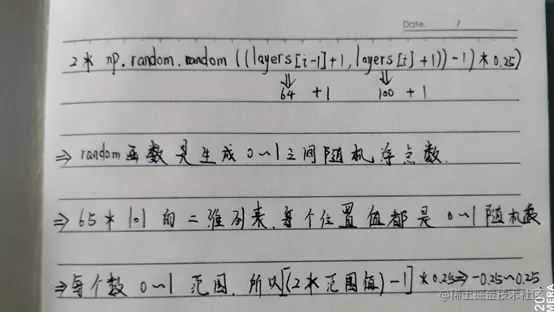 Date. /
2 * np.random.random((layers[i-1]+1, layers[i]+1))-1)*0.25)
⇓ ⇓
64 +1 100 +1
⇒ random函数是生成0~1之间随机浮点数.
⇒ 65 * 101 的二维列表,每个位置值都是0~1随机数
⇒ 每个数0~1范围,所以[(2*范围值)-1]*0.25⇒-0.25~0.25
@稀土掘金技术社区